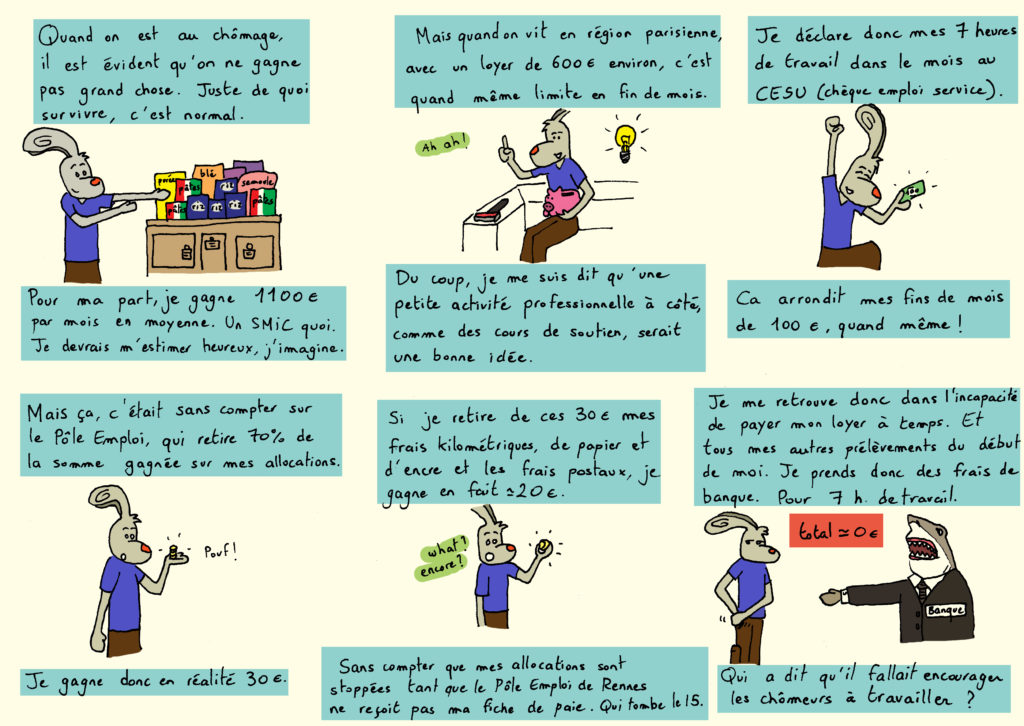 Quand on est au chômage,
il est évident qu'on ne gagne
pas grand chose. Juste de quoi
survivre, c'est normal.
purée
blé
pâtes
riz
semoule
pâtes
riz
riz
riz
pâtes
Pour ma part, je gagne 1100 €
par mois en moyenne. Un SMiC quoi.
Je devrais m'estimer heureux, j'imagine.
Mais quand on vit en région parisienne,
avec un loyer de 600 € environ, c'est
quand même limite en fin de mois.
Ah ah!
Du coup, je me suis dit qu'une
petite activité professionnelle à côté,
comme des cours de soutien, serait
une bonne idée.
Je déclare donc mes 7 heures
de travail dans le mois au
CESU (chèque emploi service).
100
Ca arrondit mes fins de mois
de 100 €, quand même !
Mais ça, c'était sans compter sur
le Pôle Emploi, qui retire 70% de
la somme gagnée sur mes allocations.
Pouf!
Je gagne donc en réalité 30 €.
Si je retire de ces 30 € mes
frais kilométriques, de papier et
d'encre et les frais postaux, je
gagne en fait ≃20 €.
what?
encore?
Sans compter que mes allocations sont
stoppées tant que le Pôle Emploi de Rennes
ne reçoit pas ma fiche de paie. Qui tombe le 15.
Je me retrouve donc dans l'incapacité
de payer mon loyer à temps. Et
tous mes autres prélèvements du début
de moi. Je prends donc des frais de
banque. Pour 7 h. de travail.
total ≃ 0 €
Banque
Qui a dit qu'il fallait encourager
les chômeurs à travailler ?